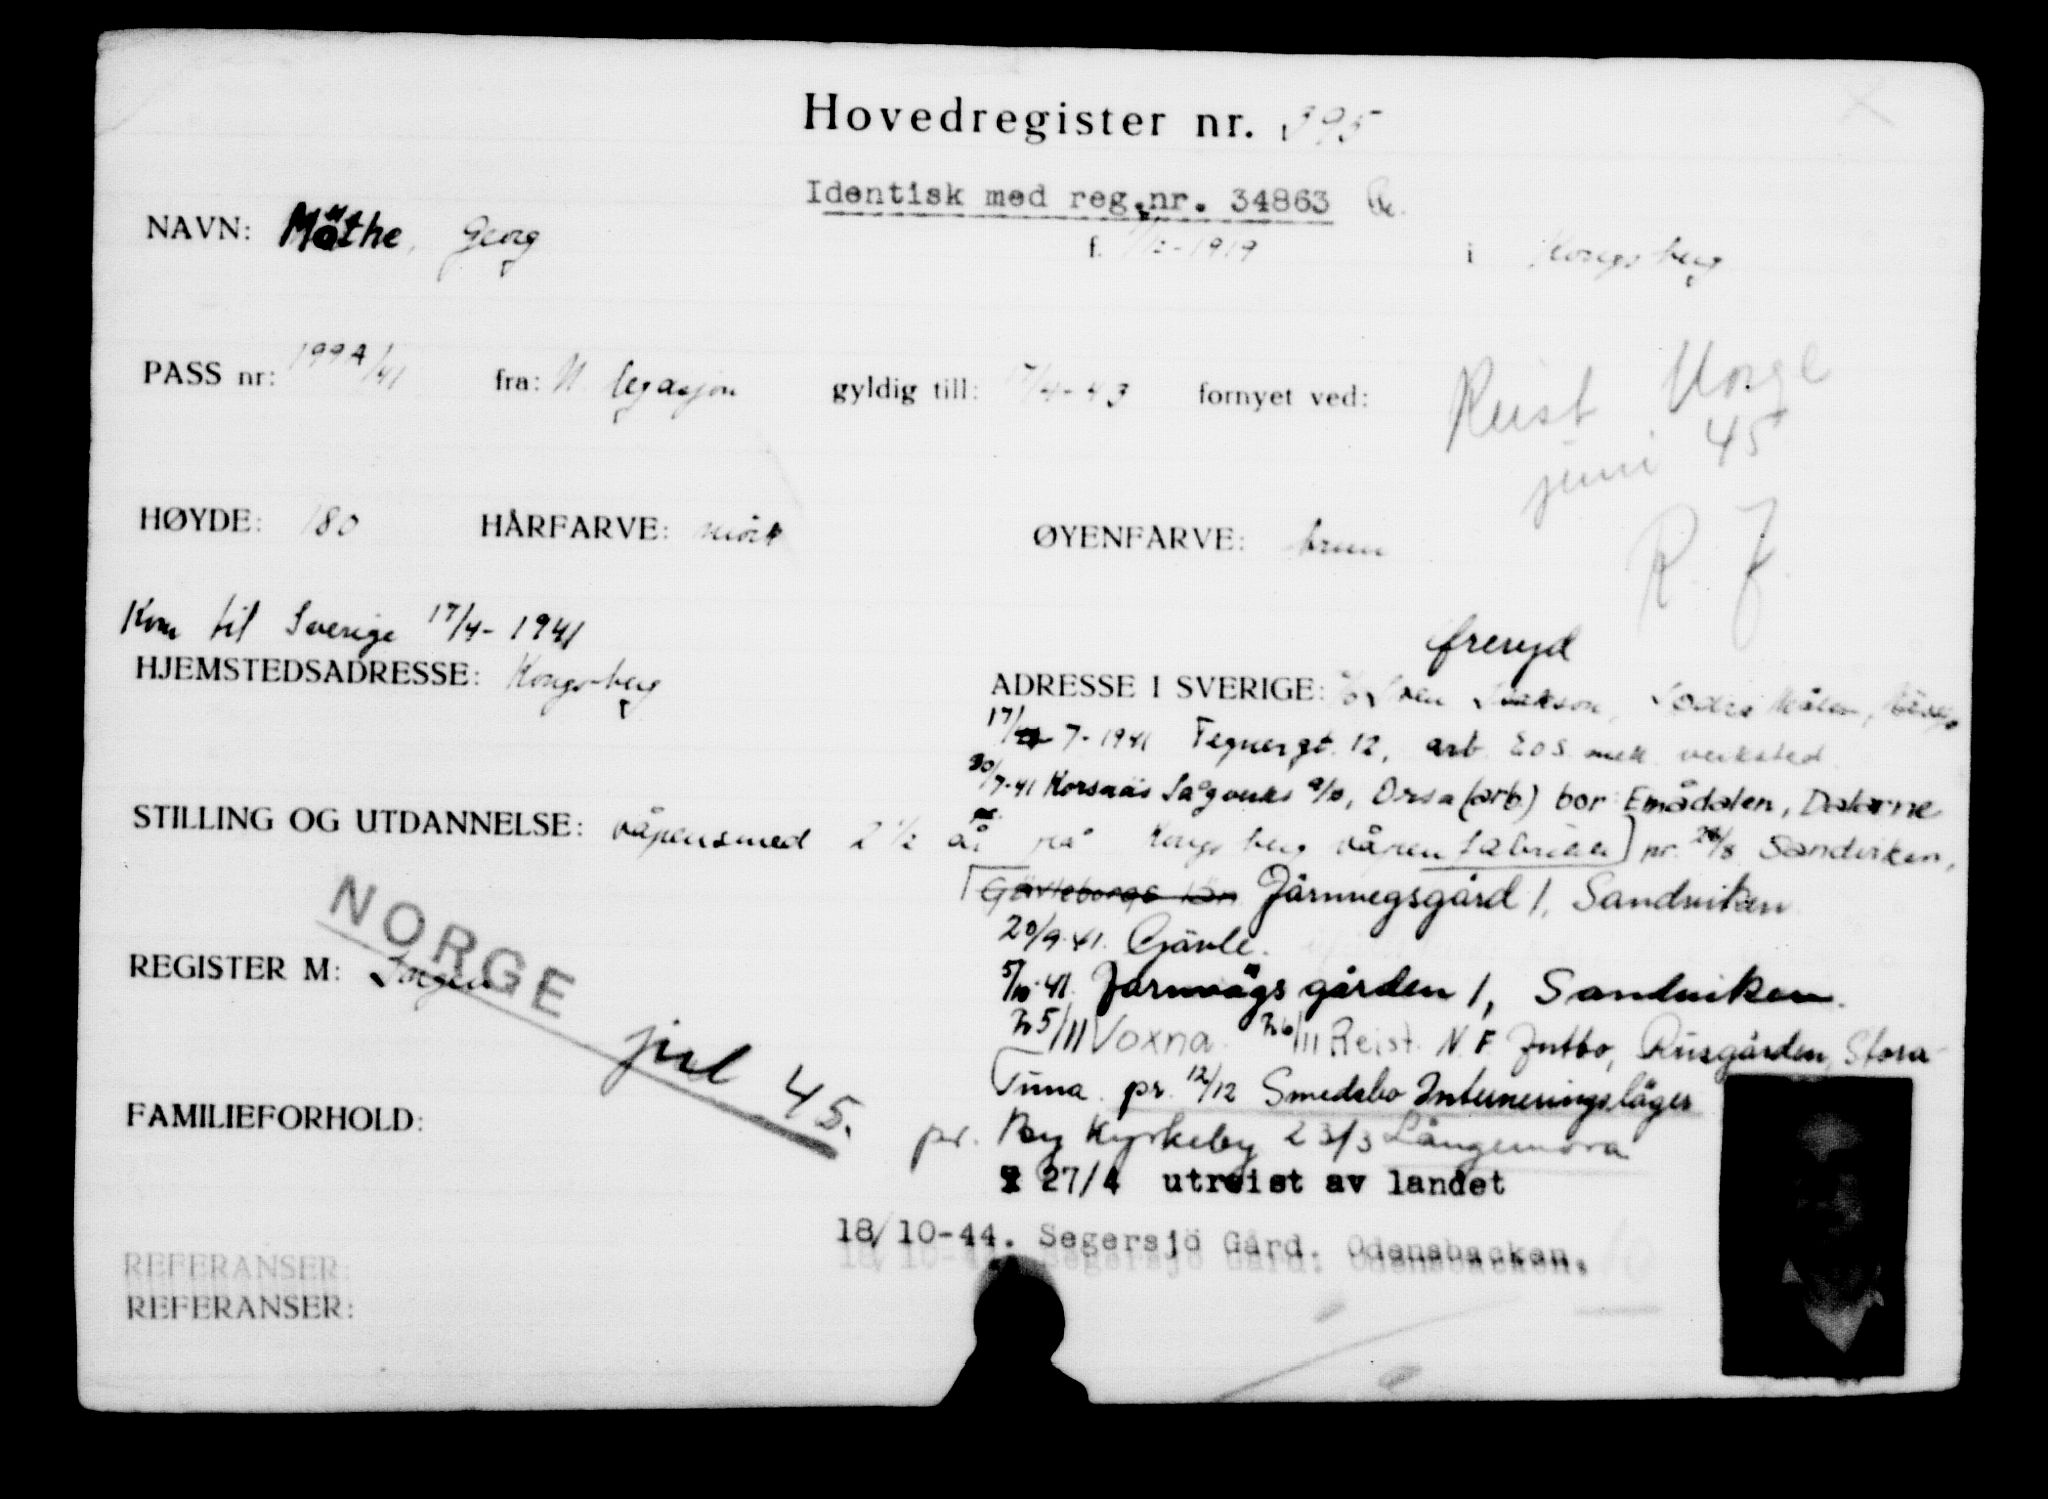 Hovedregister nr. 395
Identisk med reg.nr. 34863
NAVN: Möthe, Georg f. /12-1919 i Kongsberg
PASS nr: 1994/41 fra: N. legasjon gyldig till: 17/4-43 fornyet ved:
Reist Norge
juni 45
HØYDE: 180 HÅRFARVE: mörk ØYENFARVE: brun
R. F.
Kom til Sverige 17/4-1941
HJEMSTEDSADRESSE: Kongsberg
freryd
ADRESSE I SVERIGE: c/o Sven
17/7-1941 Tegnergt. 12, arb. EOS mek verksted
30/7-41 Korsnäs Sågverks A/B, Orsa (arb) bor: Emådalen, Dalarne
STILLING OG UTDANNELSE: våpensmed 2 1/2 år på Kongsberg våpenfabrikk pr. 28/8 Sandviken,
Gävleborgs län Järnvegsgård 1, Sandviken
20/9-41. Gävle.
5/10-41. Järnvägsgården 1, Sandviken.
NORGE
REGISTER M: Ingen
jul 45.
25/11 Voxna. 26/11 Reist N.F. Jutbo, Rusgården, Stora
Tuna. pr. 12/12 Smedsbo Interneringsläger
FAMILIEFORHOLD:
pr. By Kyrkeby 23/3 Långemora
27/4 utreist av landet
18/10-44. Segersjö Gård. Odensbacken.
REFERANSER:
REFERANSER: